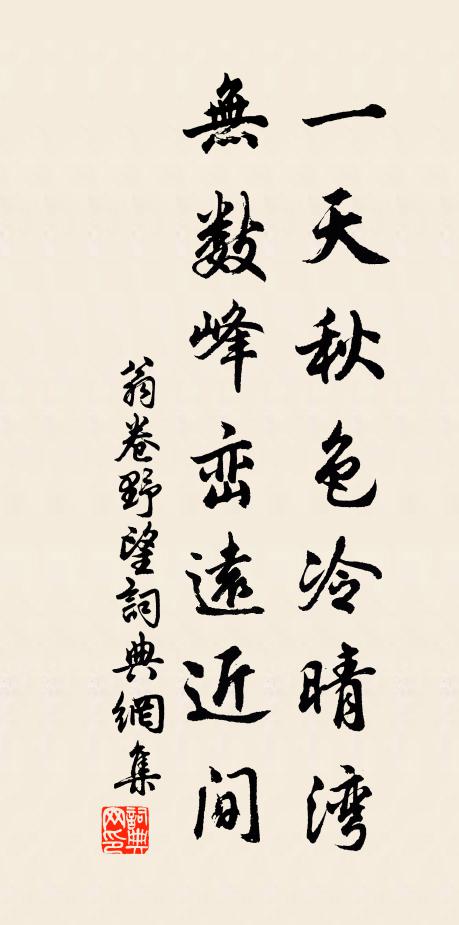 一天秋色冷晴湾
無數峰峦遠近间
翁卷野望詞典網集
詞典网印